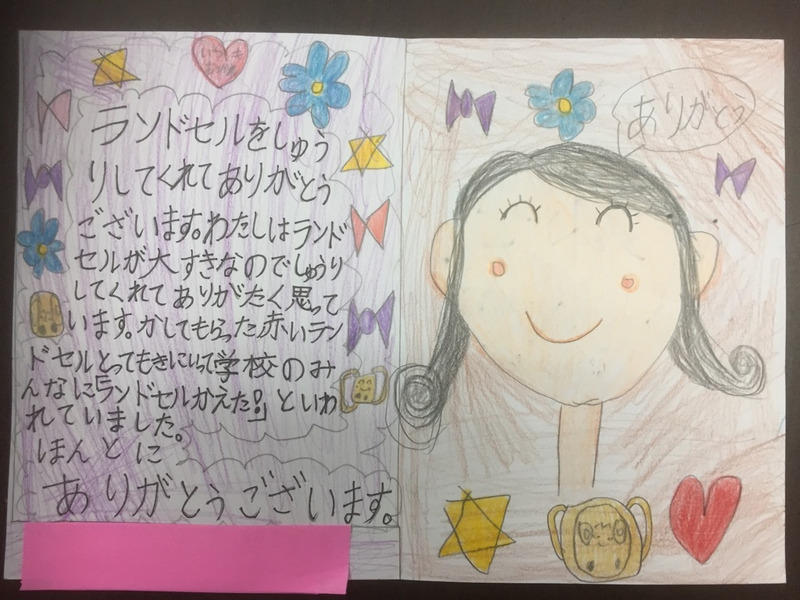 ランドセルをしゅう
りしてくれてありがとう
ございます。わたしはランド
セルが大すきなのでしゅうり
してくれてありがたく思って
います。かしてもらった赤いラン
ドセルとってもきにいって学校のみ
んなに「ランドセルかえた?」といわ
れていました。
ほんとに
ありがとうございます。
ありがとう